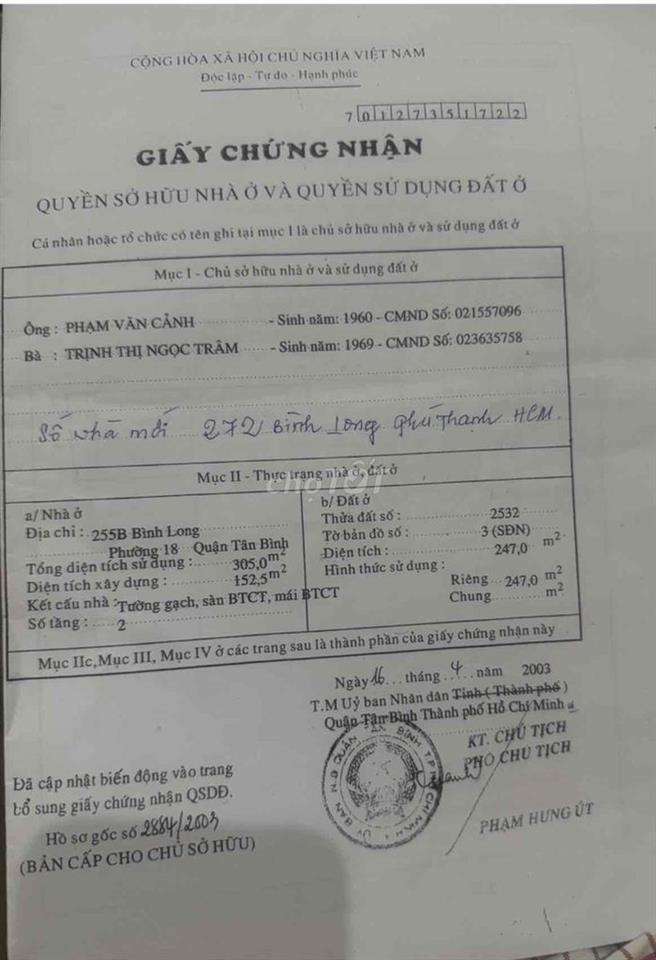 CỘNG HÒA XÃ HỘI CHỦ NGHĨA VIỆT NAM
Độc lập - Tự do - Hạnh phúc
7 0127351722
GIẤY CHỨNG NHẬN
QUYỀN SỞ HỮU NHÀ Ở VÀ QUYỀN SỬ DỤNG ĐẤT Ở
Cá nhân hoặc tổ chức có tên ghi tại mục I là chủ sở hữu nhà ở và sử dụng đất ở
Mục I - Chủ sở hữu nhà ở và sử dụng đất ở
Ông : PHẠM VĂN CẢNH - Sinh năm: 1960 - CMND Số: 021557096
Bà : TRỊNH THỊ NGỌC TRÂM - Sinh năm: 1969 - CMND Số: 023635758
Số nhà mới 272 Bình Long Phú Thạnh HCM.
Mục II - Thực trạng nhà ở, đất ở
chợTỐT
a/ Nhà ở
Địa chỉ : 255B Bình Long
Phường 18 Quận Tân Bình
Tổng diện tích sử dụng : 305,0 m2
Diện tích xây dựng : 152,5 m2
Kết cấu nhà : Tường gạch, sàn BTCT, mái BTCT
Số tầng : 2
b/ Đất ở
Thửa đất số : 2532
Tờ bản đồ số : 3 (SĐN)
Diện tích : 247,0 m2
Hình thức sử dụng :
Riêng 247,0 m2
Chung m2
Mục IIc, Mục III, Mục IV ở các trang sau là thành phần của giấy chứng nhận này
Ngày 16 tháng 4 năm 2003
T.M Uỷ ban Nhân dân Tỉnh ( Thành phố )
Quận Tân Bình Thành phố Hồ Chí Minh
KT. CHỦ TỊCH
PHÓ CHỦ TỊCH
PHẠM HÙNG ÚT
ỦY BAN N.D QUẬN TÂN BÌNH T.P HỒ CHÍ MINH
Đã cập nhật biến động vào trang
bổ sung giấy chứng nhận QSDĐ.
Hồ sơ gốc số 2884/2003
(BẢN CẤP CHO CHỦ SỞ HỮU)